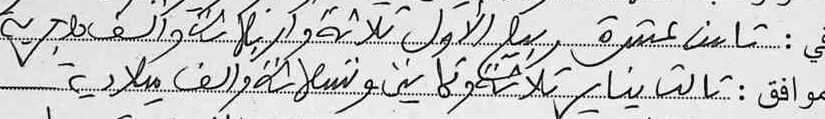 في : ثامن عشرة ربيع الأول ثلاثة وأربعمائة وألف هجرية
موافق : ثالث يناير ثلاثة وثمانين وتسعمائة وألف ميلادية